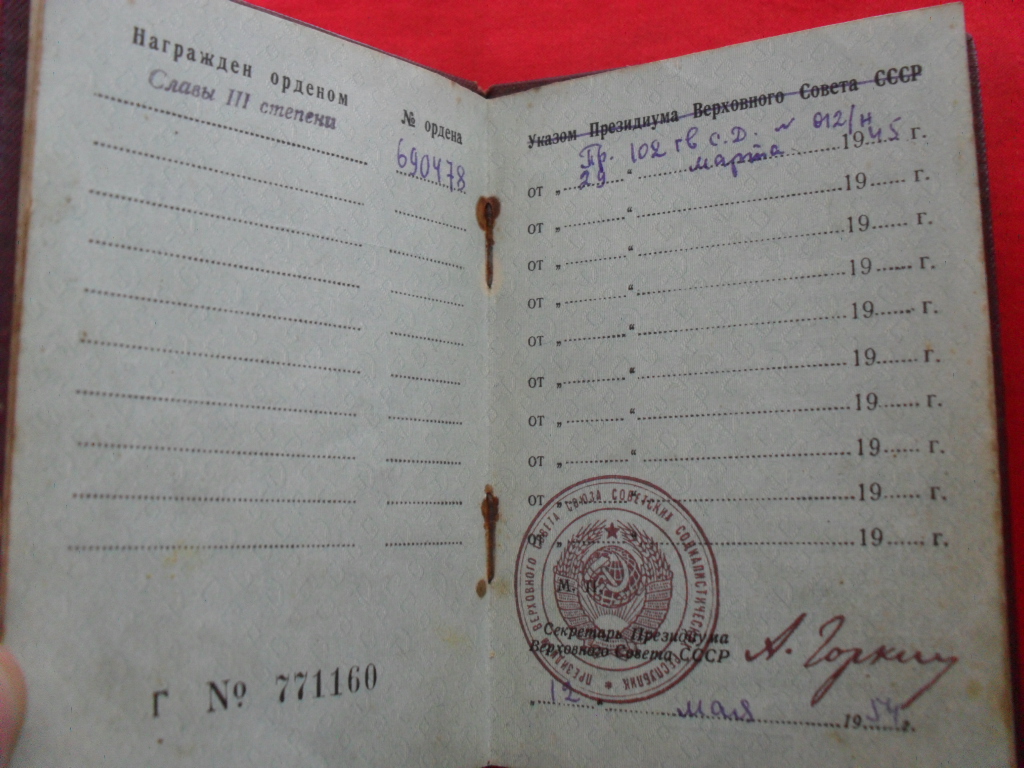 Награжден орденом
Славы III степени
№ ордена
690478
Г № 771160
Указом Президиума Верховного Совета СССР
Пр. 102 гв С.Д. N 012/н
от „ 29 “ марта 1945 г.
от „ “ 19 г.
от „ “ 19 г.
от „ “ 19 г.
от „ “ 19 г.
от „ “ 19 г.
от „ “ 19 г.
от „ “ 19 г.
от „ “ 19 г.
от „ “ 19 г.
ПРЕЗИДИУМ ВЕРХОВНОГО СОВЕТА СОЮЗА СОВЕТСКИХ СОЦИАЛИСТИЧЕСКИХ РЕСПУБЛИК
М. П.
Секретарь Президиума
Верховного Совета СССР
А. Горкин
„ 12 “ мая 1954 г.